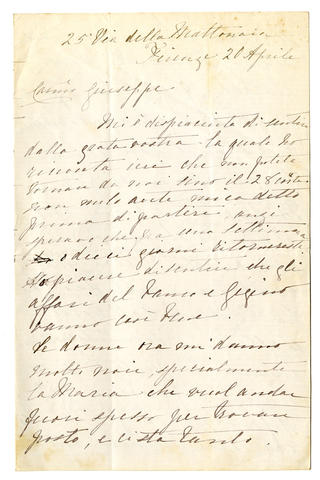 25 Via della Mattonaia
Firenze 20 Aprile
Carmo Giuseppe
Mi è dispiaciuto di sentire
dalla grata vostra la quale ho
ricevuta ieri che non potete
tornar da noi sino il 28 corr
non avete mica detto
prima di partire, anzi
speravo che fra una settimana
o dieci giorni ritornereste
Ho piacere di sentire che gli
affari del Vanno e Gigino
vanno così bene.
Le donne ora mi danno
molte noie, specialmente
la Maria che vuol andar
fuori spesso per trovare
posto, e ci sta tanto.